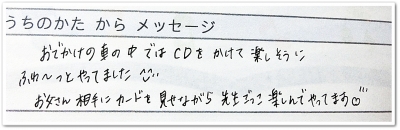 うちのかた から メッセージ
おでかけの車の中では CDを かけて 楽しそうに
ふゅ〜っとやってました
お父さん 相手に カードを 見せながら 先生ごっこ 楽しんでやってます